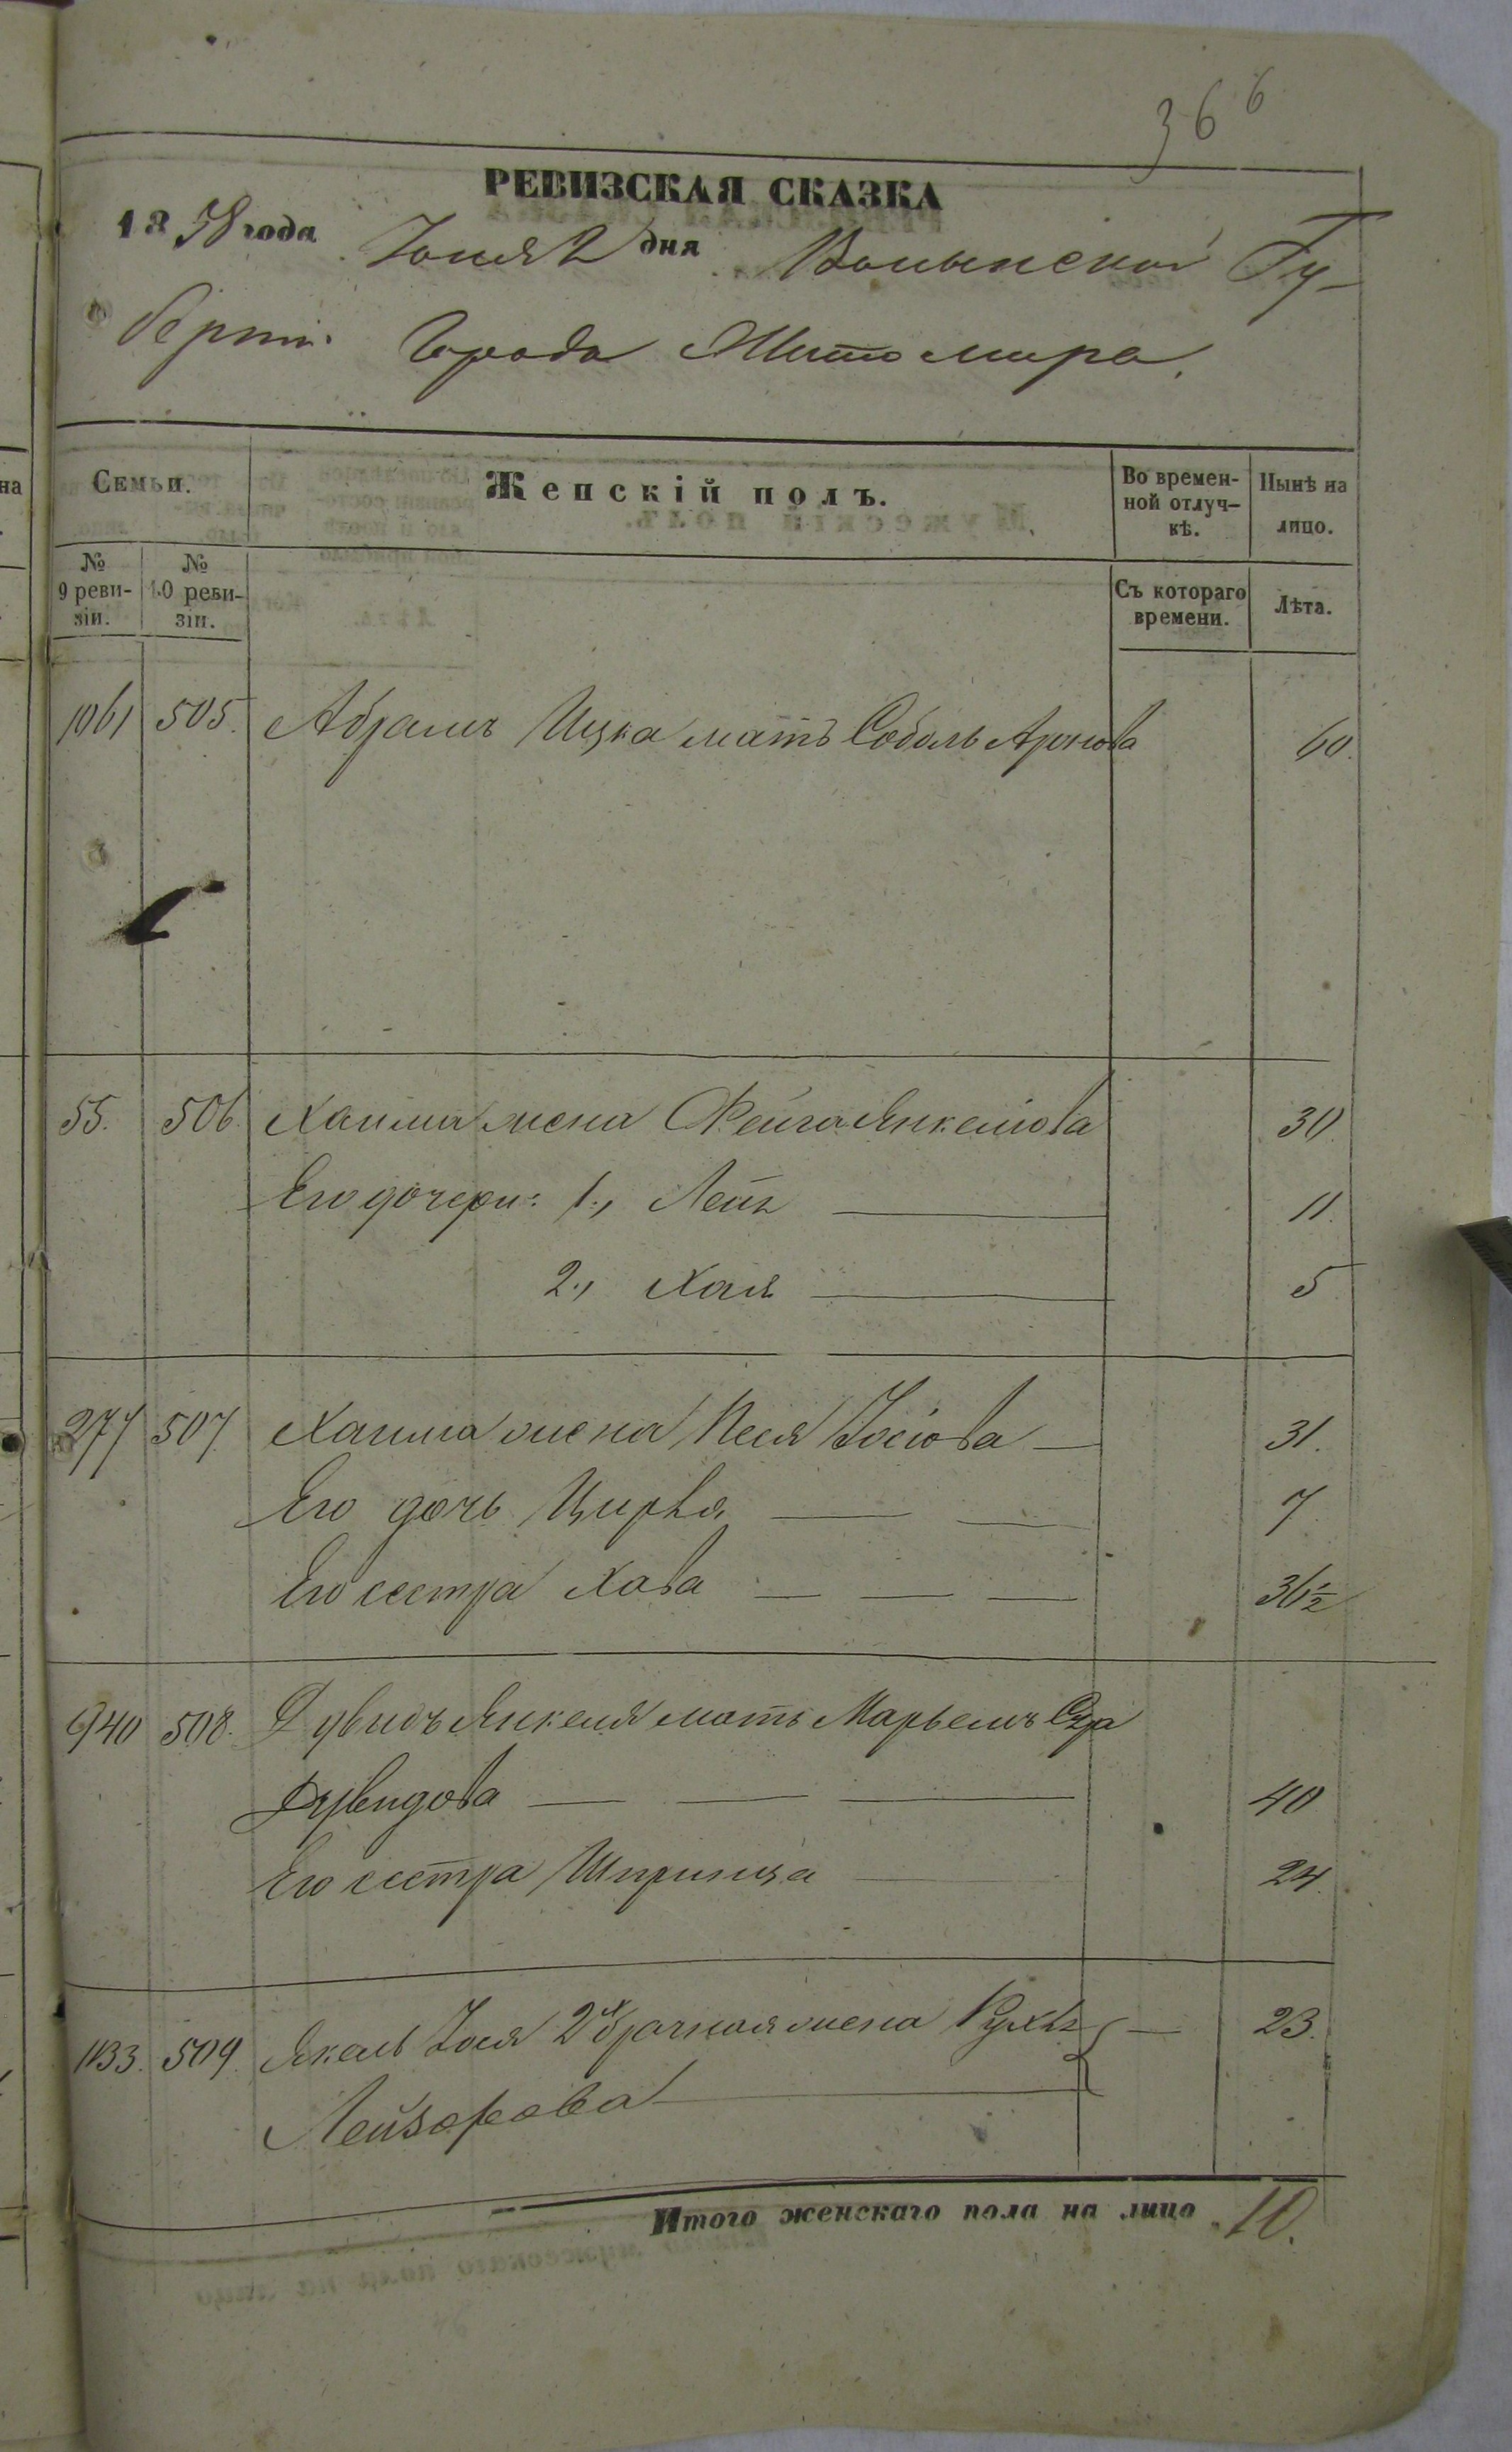 366
РЕВИЗСКАЯ СКАЗКА
1858 года Іюня 2 дня Волынской Гу-
берніи Города Житомира.
Семьи.
Женскій полъ.
Во времен-
ной отлуч-
кѣ.
Нынѣ на
лицо.
№
9 реви-
зіи.
№
10 реви-
зіи.
Съ котораго
времени.
Лѣта.
1061 505. Абрамъ Ицка мать Соболь Аронова 60.
55. 506. Хаима жена Фейга Янкелова 30.
Его дочери: 1., Лея 11.
2., Хая 5
277 507 Хаима жена Песя Іосіова 31.
Его дочь Цирля 7
Его сестра Хава 36½
940 508. Дувидъ Янкеля мать Марьемъ Сура
Дувидова 40
Его сестра Шпринца 24.
1133. 509. Якель Іося 2х брачная жена Рухля 23.
Лейзорова
Итого женскаго пола на лицо 10.